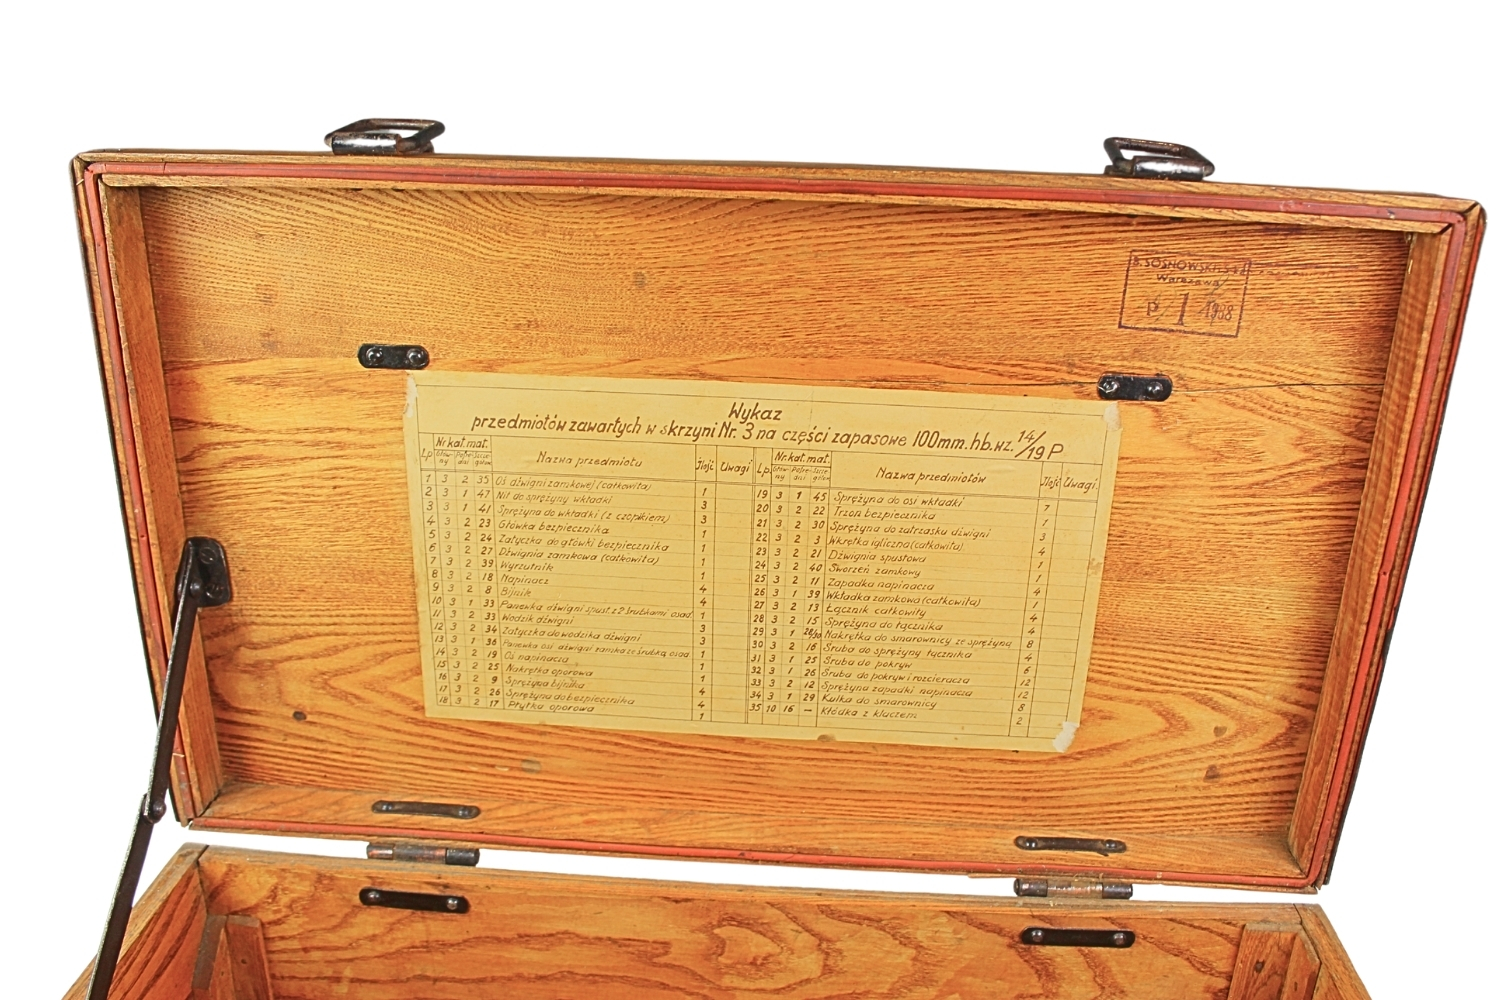 B. SOSNOWSKI i S-ka
Warszawa
P 1 1938
Wykaz
przedmiotów zawartych w skrzyni Nr. 3 na części zapasowe 100mm. hb. wz. 14/19 P
Lp Nr kat. mat. Nazwa przedmiotu Ilość Uwagi
1 3 2 35 Oś dźwigni zamkowej (całkowita) 1
2 3 1 47 Nit do sprężyny wkładki 3
3 3 1 41 Sprężyna do wkładki (z czopikiem) 3
4 3 2 23 Główka bezpiecznika 1
5 3 2 24 Zatyczka do główki bezpiecznika 1
6 3 2 27 Dźwignia zamkowa (całkowita) 1
7 3 2 39 Wyrzutnik 1
8 3 2 18 Napinacz 4
9 3 2 8 Bijnik 4
10 3 1 33 Panewka dźwigni spust. z 2 śrubkami osad. 1
11 3 2 33 Wodzik dźwigni 1
12 3 2 34 Zatyczka do wodzika dźwigni 3
13 3 1 36 Panewka osi dźwigni zamka ze śrubką osad. 1
14 3 2 19 Oś napinacza 1
15 3 2 25 Nakrętka oporowa 1
16 3 2 9 Sprężyna bijnika 4
17 3 2 26 Sprężyna do bezpiecznika 4
18 3 2 17 Płytka oporowa 1
Lp. Nr kat. mat. Nazwa przedmiotów Ilość Uwagi.
19 3 1 45 Sprężyna do osi wkładki 7
20 3 2 22 Trzon bezpiecznika 1
21 3 2 30 Sprężyna do zatrzasku dźwigni 3
22 3 2 3 Wkrętka igliczna (całkowita) 4
23 3 2 21 Dźwignia spustowa 1
24 3 2 40 Sworzeń zamkowy 1
25 3 2 11 Zapadka napinacza 4
26 3 1 39 Wkładka zamkowa (całkowita) 1
27 3 2 13 Łącznik całkowity 4
28 3 2 15 Sprężyna do łącznika 4
29 3 1 28/30 Nakrętka do smarownicy ze sprężyną 8
30 3 2 16 Śruba do sprężyny łącznika 4
31 3 1 25 Śruba do pokryw 6
32 3 1 26 Śruba do pokryw i rozcieracza 12
33 3 2 12 Sprężyna zapadki napinacza 12
34 3 1 29 Kulka do smarownicy 8
35 10 16 — Kłódka z kluczem 2